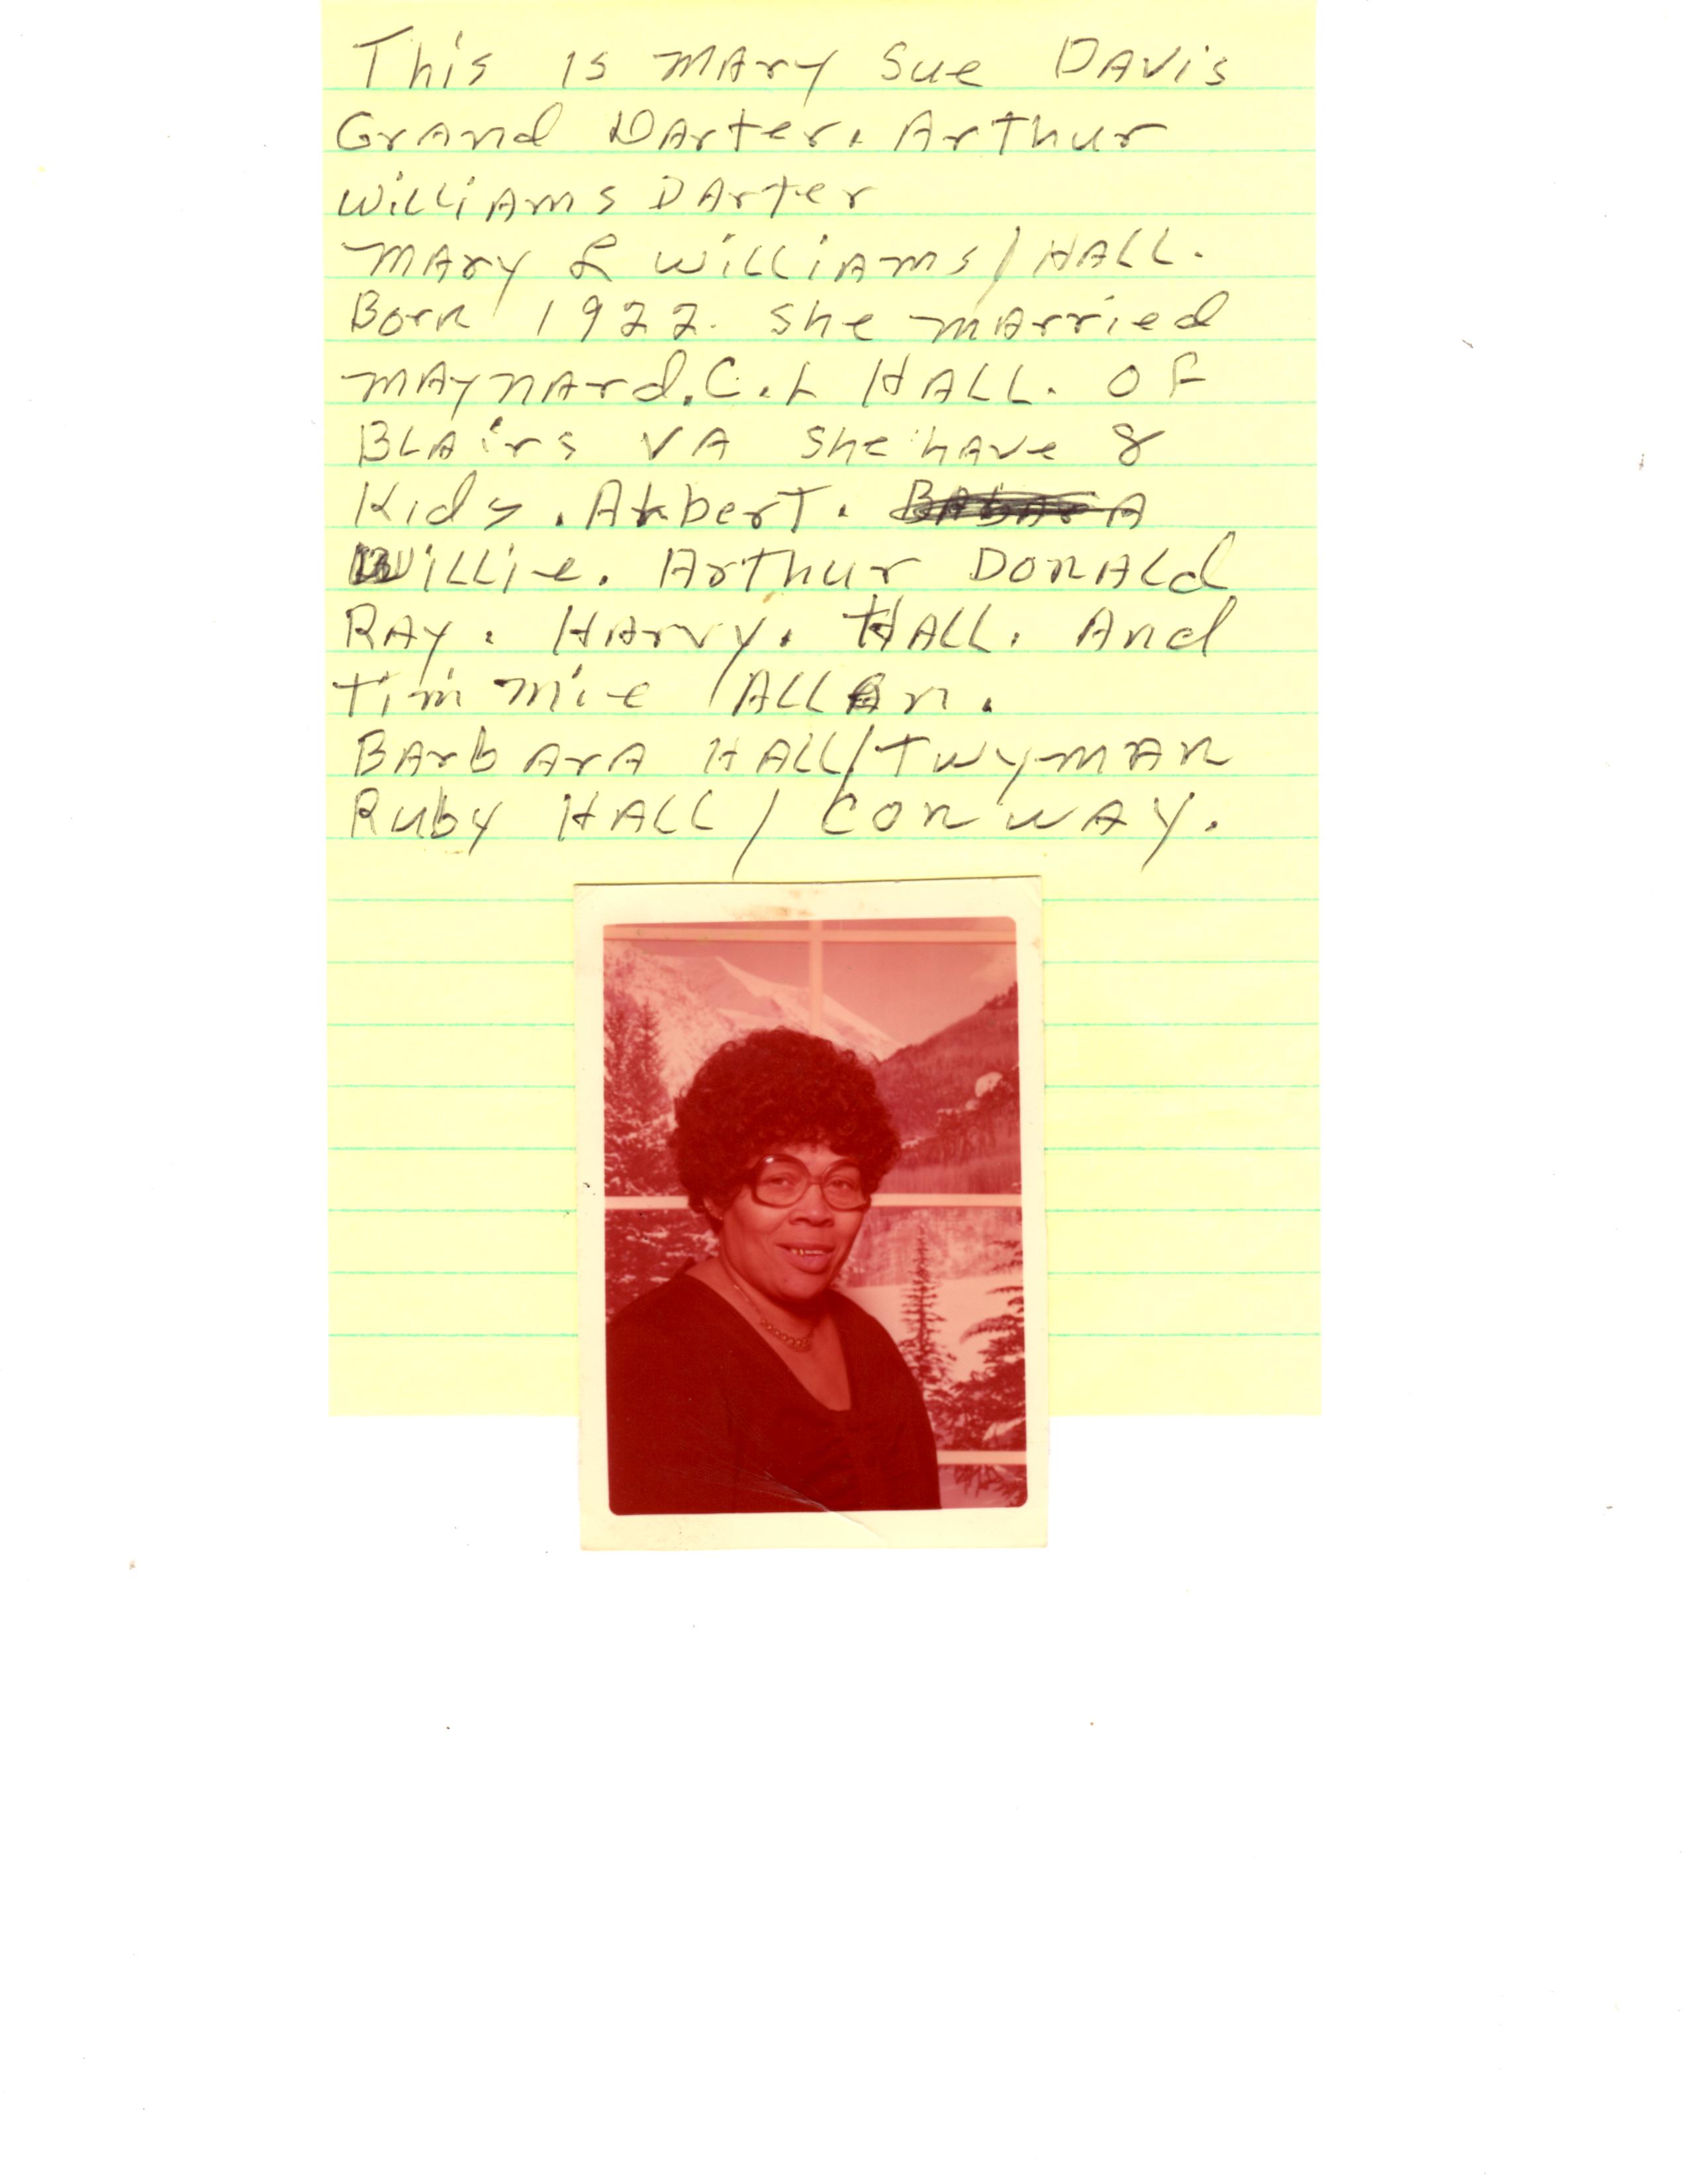 This is MAry Sue DAvis
GrAnd DArter. Arthur
WiLLiAms DArter
MAry L WiLLiAms/HALL.
Born 1922. She mArried
MAynArd.C.L HALL. OF
BLAirs VA She hAve 8
Kids. ALberT.
WiLLie. Arthur DonALd
RAy. HArvy. HALL. And
Timmie ALLAn.
BArbArA HALL/TwymAn
Ruby HALL/ConwAy.